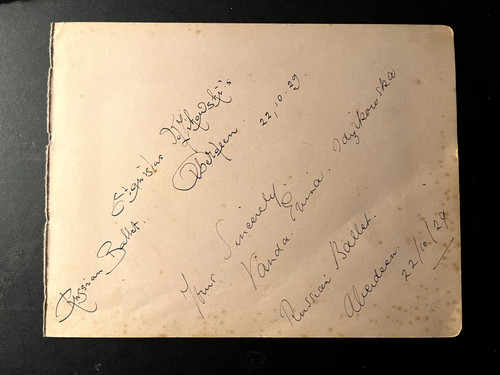 Aberdeen. 22.10.29.
Russian Ballet.
Yours Sincerely
Vanda. Evina. Idzikowska
Russian Ballet.
Aberdeen.
22/10/29